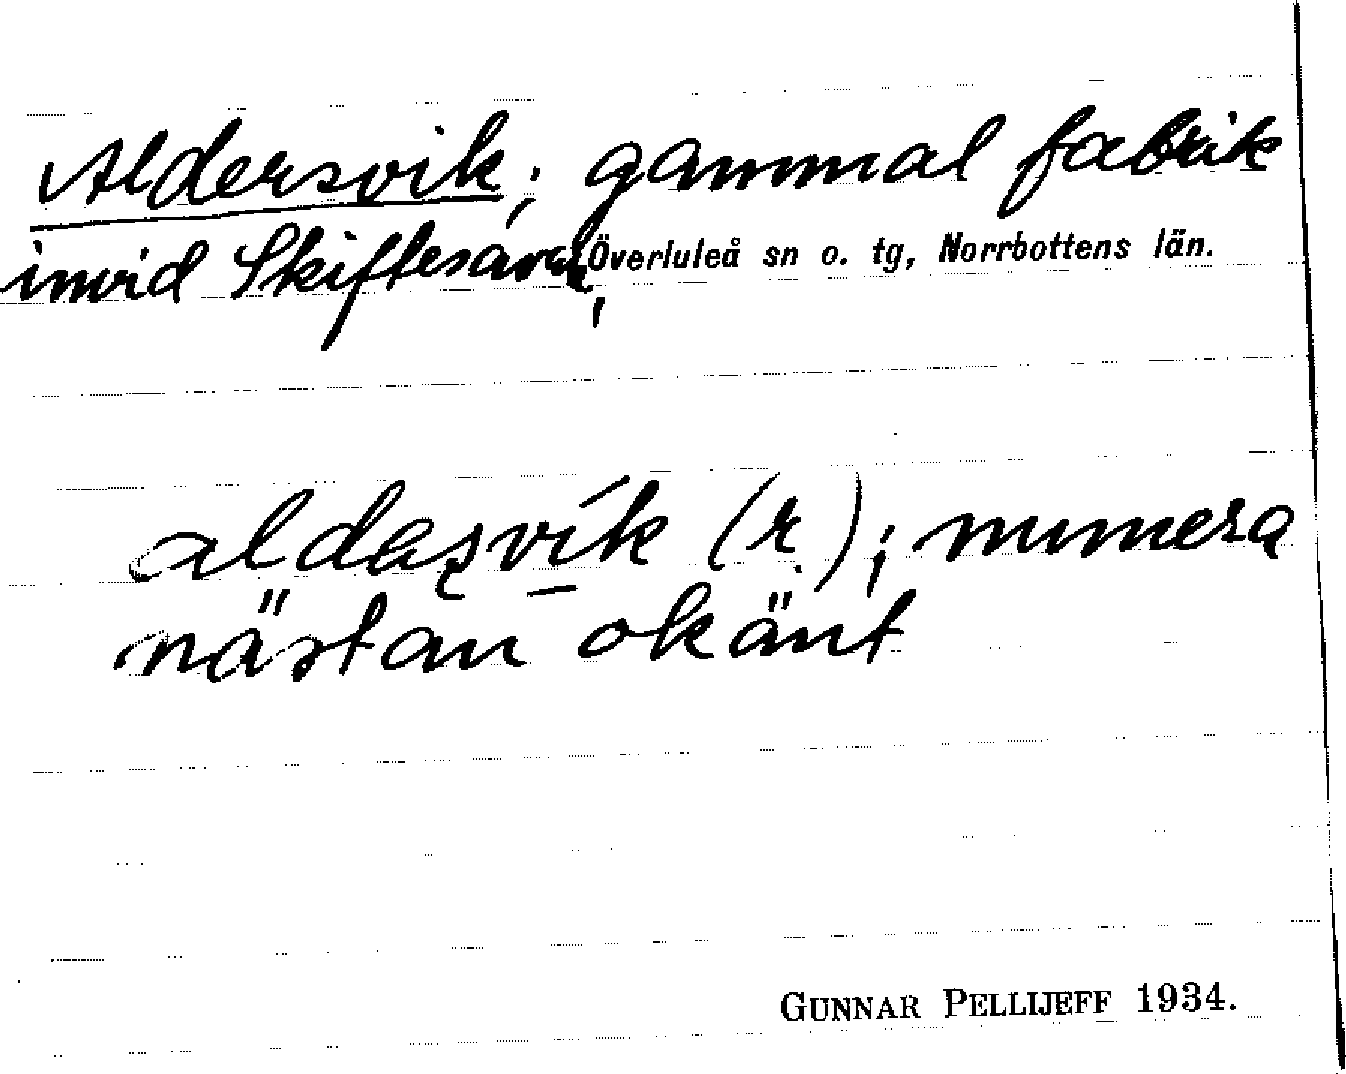 Aldersvik; gammal fabrik
invid Skiftesåven, Överluleå sn o. tg, Norrbottens län.
aldaʂvik (r.); numera
nästan okänt
GUNNAR PELLIJEFF 1934.